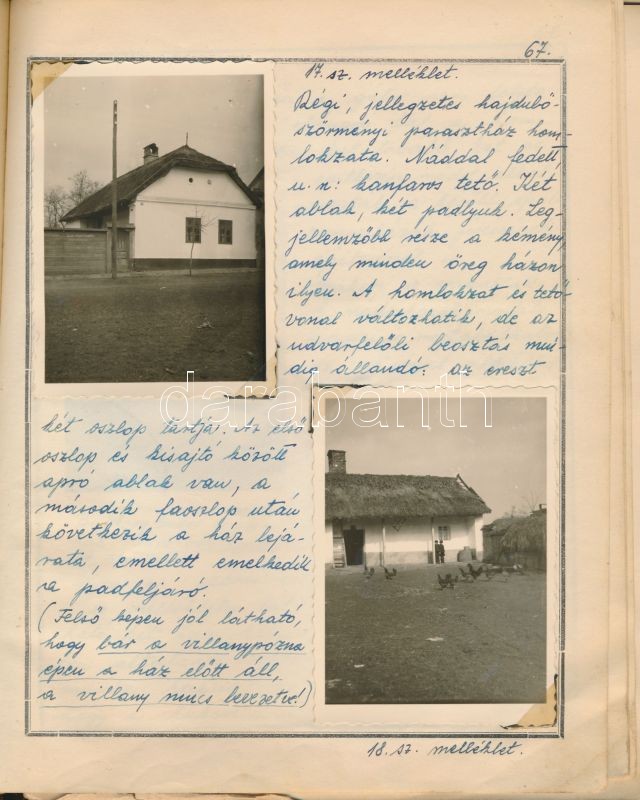 67.
17. sz. melléklet.
Régi, jellegzetes hajdubö-
szörményi parasztház hom-
lokzata. Náddal fedett,
u. n: kanfaros tető. Két
ablak, két padlyuk. Leg-
jellemzőbb része a kémény
amely minden öreg házon
ilyen. A homlokzat és tető-
vonal változhatik, de az
udvarfelőli beosztás min-
dig állandó: az ereszt
két oszlop tartja. Az első
oszlop és kisajtó között
apró ablak van, a
második faoszlop után
következik a ház lejá-
rata, emellett emelkedik
a padfeljáró.
(Felső képen jól látható,
hogy bár a villanypózna
épen a ház előtt áll,
a villany nincs bevezetve!)
18. sz. melléklet.
darabanth